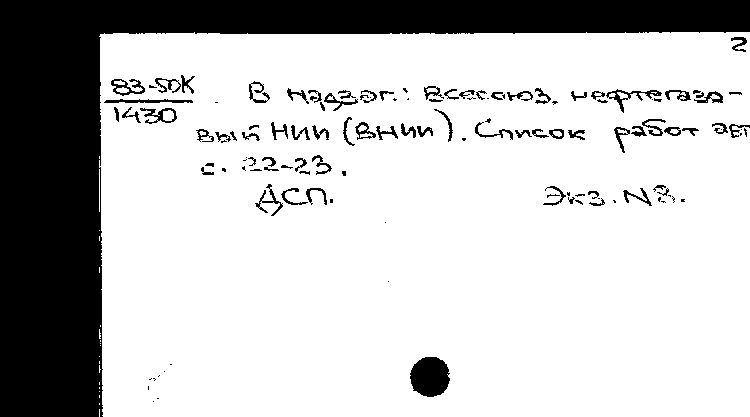 2
83-50К
1430
В надзаг.: Всесоюз. нефтегазо-
вый НИИ (ВНИИ). Список работ авт
с. 22-23.
ДСП. Экз. N8.